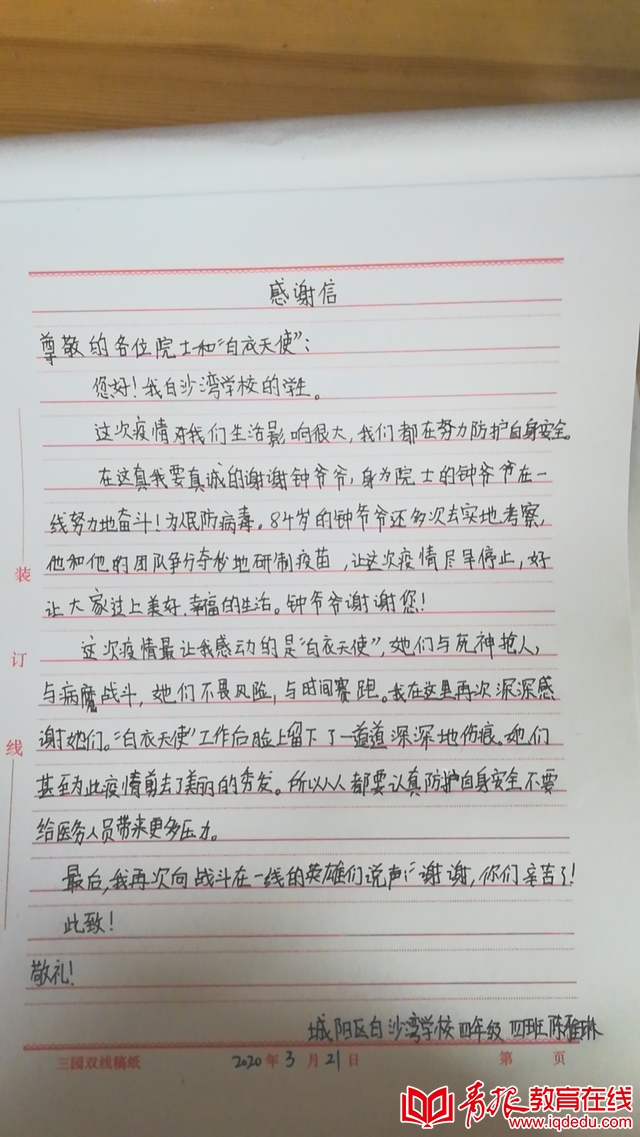 感谢信
尊敬的各位院士和“白衣天使”：
您好！我白沙湾学校的学生。
这次疫情对我们生活影响很大，我们都在努力防护自身安全。
在这真我要真诚的谢谢钟爷爷，身为院士的钟爷爷在一
线努力地奋斗！为人民防病毒。84岁的钟爷爷还多次去实地考察，
他和他的团队争分夺秒地研制疫苗，让这次疫情尽早停止，好
让大家过上美好、幸福的生活。钟爷爷谢谢您！
这次疫情最让我感动的是“白衣天使”，她们与死神抢人，
与病魔战斗，她们不畏风险，与时间赛跑。我在这里再次深深感
谢她们。“白衣天使”工作后脸上留下了一道道深深地伤痕。她们
甚至为此疫情剪去了美丽的秀发。所以人人都要认真防护自身安全不要
给医务人员带来更多压力。
最后，我再次向战斗在一线的英雄们说声：“谢谢，你们辛苦了！
此致！
敬礼！
城阳区白沙湾学校四年级 四班陈雅琳
三园双线稿纸 2020年3月21日 第 页
装
订
线
青报教育在线
www.iqdedu.com